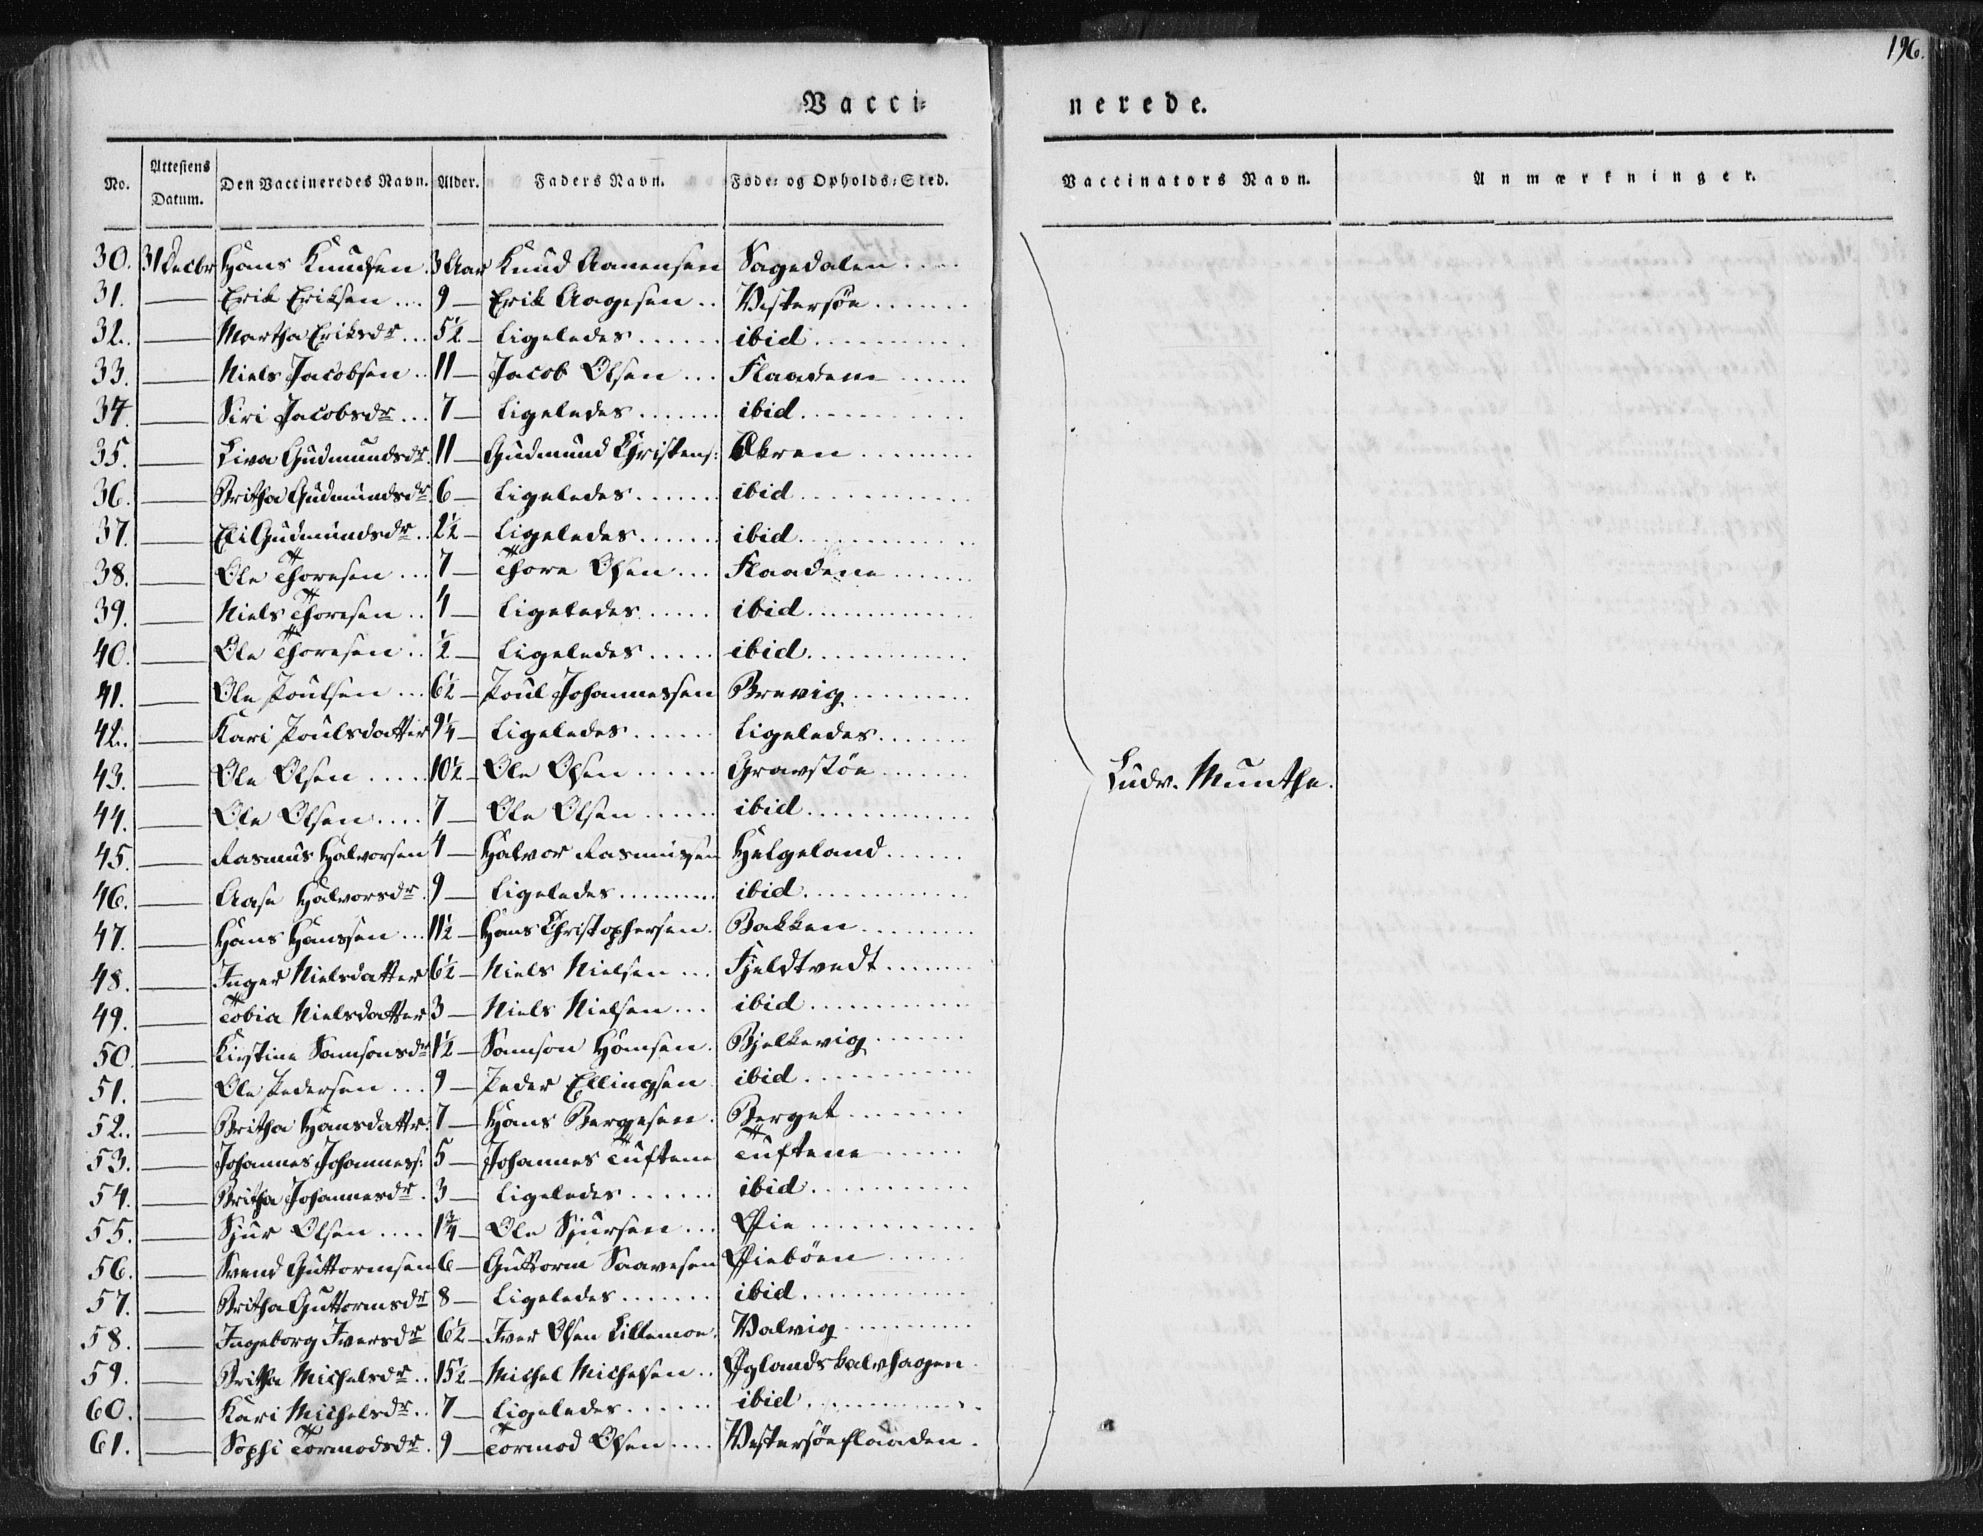 196.
Vacci=
nerede.
No. Attestens Datum. Den Vaccineredes Navn. Alder. Faders Navn. Føde= og Opholds=Sted.
Vaccinators Navn. Anmærkninger.
30. 31 Decbr Hans Knudsen. 3 Aar Knud Aanensen Sagedalen....
31. — Erik Eriksen.... 9 — Erik Aagesen.. Vestersøe.......
32. — Martha Eriksdr... 5½ — Ligeledes...... ibid...........
33. — Niels Jacobsen.. 11 — Jacob Olsen... Flaadene......
34. — Siri Jacobsdr... 7 — Ligeledes....... ibid...........
35. — Liva Gudmundsdr. 11 — Gudmund Christens: Økren........
36. — Britha Gudmundsdr. 6 — Ligeledes....... ibid...........
37. — Eli Gudmundsdr.. 2½ — Ligeledes...... ibid...........
38. — Ole Thoresen... 7 — Thore Olsen... Flaadene.......
39. — Niels Thoresen.. 4 — Ligeledes..... ibid...........
40. — Ole Thoresen.. ½ — Ligeledes..... ibid...........
41. — Ole Poulsen... 6½ — Poul Johannessen Brevig........
42. — Kari Poulsdatter 9¼ — Ligeledes...... Ligeledes......
43. — Ole Olsen..... 10½ — Ole Olsen...... Gravstøe.......
44. — Ole Olsen.... 7 — Ole Olsen...... ibid...........
45. — Rasmus Halvorsen 4 — Halvor Rasmussen Helgeland......
46. — Aase Halvorsdr. 9 — Ligeledes......... ibid...........
47. — Hans Hanssen... 11½ — Hans Christophersen. Bakken........
48. — Inger Nielsdatter 6½ — Niels Nielsen... Fjeldtvedt.......
49. — Tobia Nielsdatter 3 — Niels Nielsen... ibid...........
50. — Kirstine Samsonsdr 1½ — Samson Hansen. Bjelkevig.......
51. — Ole Pedersen... 9 — Peder Ellingsen ibid...........
52. — Britha Hansdattr: 7 — Hans Bergesen. Berget........
53. — Johannes Johanness: 5 — Johannes Tuftene Tuftene......
54. — Britha Johannesdr. 3 — Ligeledes...... ibid...........
55. — Sjur Olsen.... 1¾ — Ole Sjursen... Øie...........
56. — Svend Guttormsen 6 — Guttorm Saavesen Øiebøen......
57. — Britha Guttormsdr 8 — Ligeledes....... ibid...........
58. — Ingeborg Iversdr 6½ — Iver Olsen Lillemoe. Valvig..........
59. — Britha Michelsdr.. 15½ — Michel Michelsen.. Øglandskalvhagen.
60. — Kari Michelsdr.. 7 — Ligeledes...... ibid...........
61. — Sophi Tormodsdr. 9 — Tormod Olsen.... Vestersøeflaaden.
Ludv. Munthe.